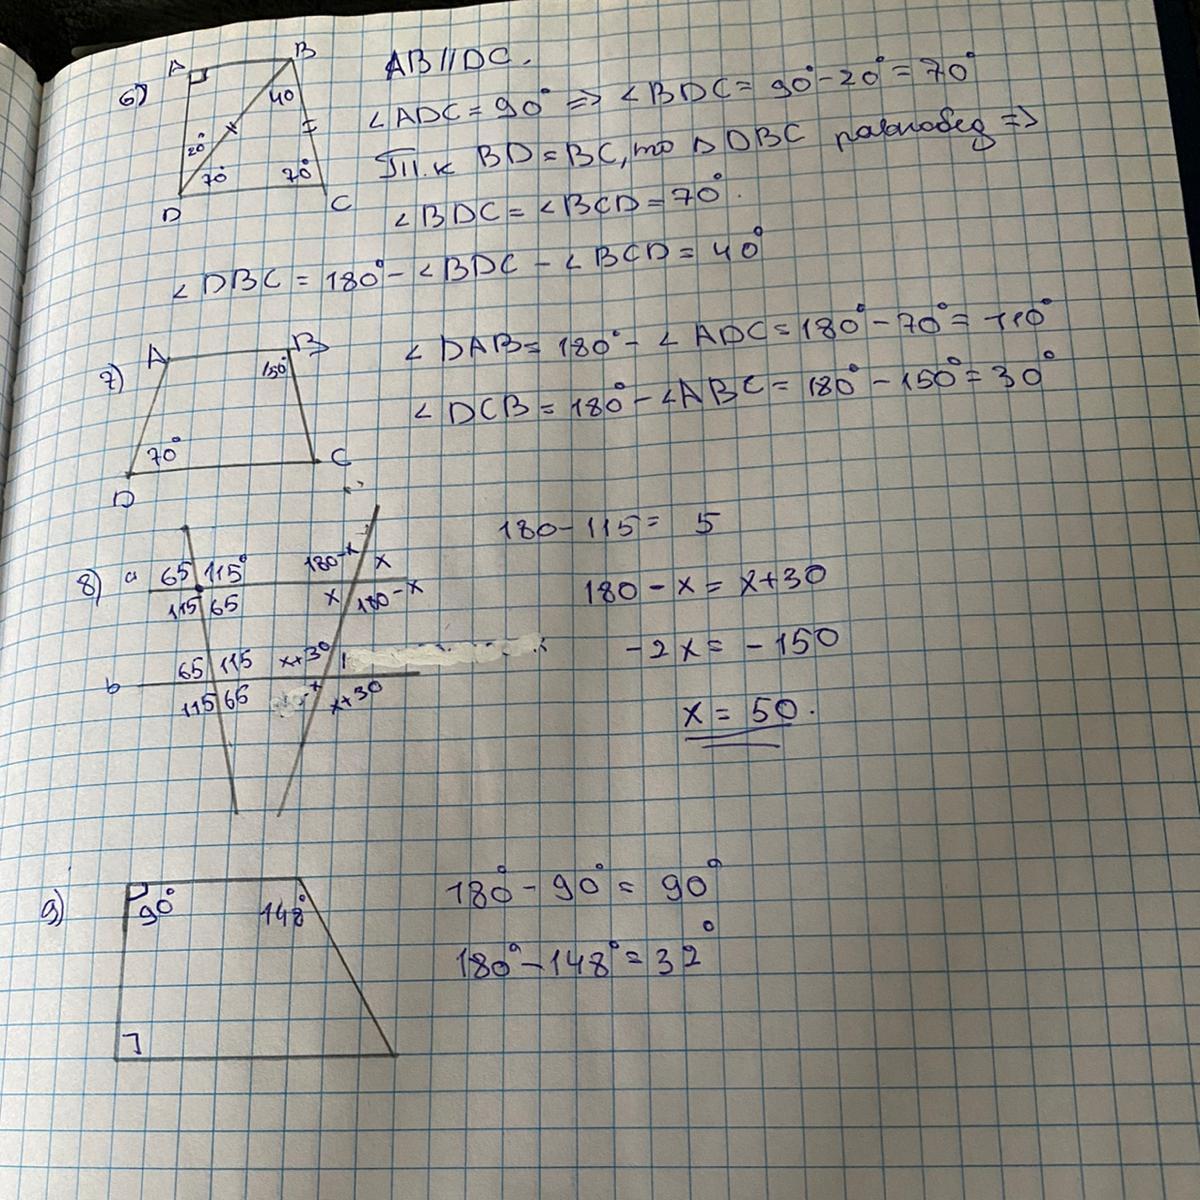 6)
A
B
40
20°
70°
70°
D
C
AB // DC.
∠ADC = 90° => ∠BDC = 90° - 20° = 70°
Т.к BD = BC, то △ DBC равнобед =>
∠BDC = ∠BCD = 70°.
∠DBC = 180° - ∠BDC - ∠BCD = 40°
7)
A
B
150°
70°
C
D
∠DAB = 180° - ∠ADC = 180° - 70° = 110°
∠DCB = 180° - ∠ABC = 180° - 150° = 30°
8)
a 65 115° 180-x x
115 65 x 180-x
b 65 115 x+30
115 65 x+30
180 - 115 = 5
180 - x = x+30
-2x = -150
x = 50.
9)
90°
148°
180° - 90° = 90°
180° - 148° = 32°